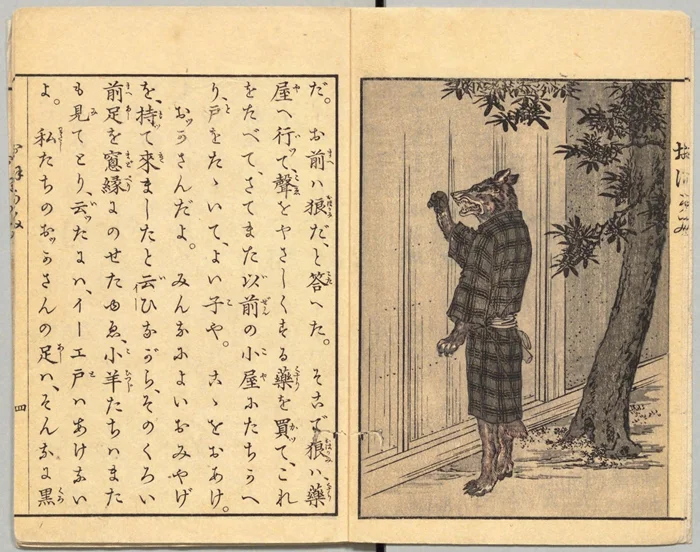 だ。お前ハ狼だ、と答へた。そこで狼ハ、藥
屋へ行ッて、聲をやさしくする藥を買て、これ
をたべて、さてまた以前の小屋にたちかへ
り、戸をたゝいて、よい子や。こゝをおあけ。
おッかさんだよ。みんなによいおみやげ
を、持て來ましたと云ひながら、そのくろい
前足を窓縁にのせたゆゑ、小羊たちハまた
も見てとり、云ッたにハ、イーエ戸ハあけない
よ。私たちのおッかさんの足ハ、そんなに黒
四